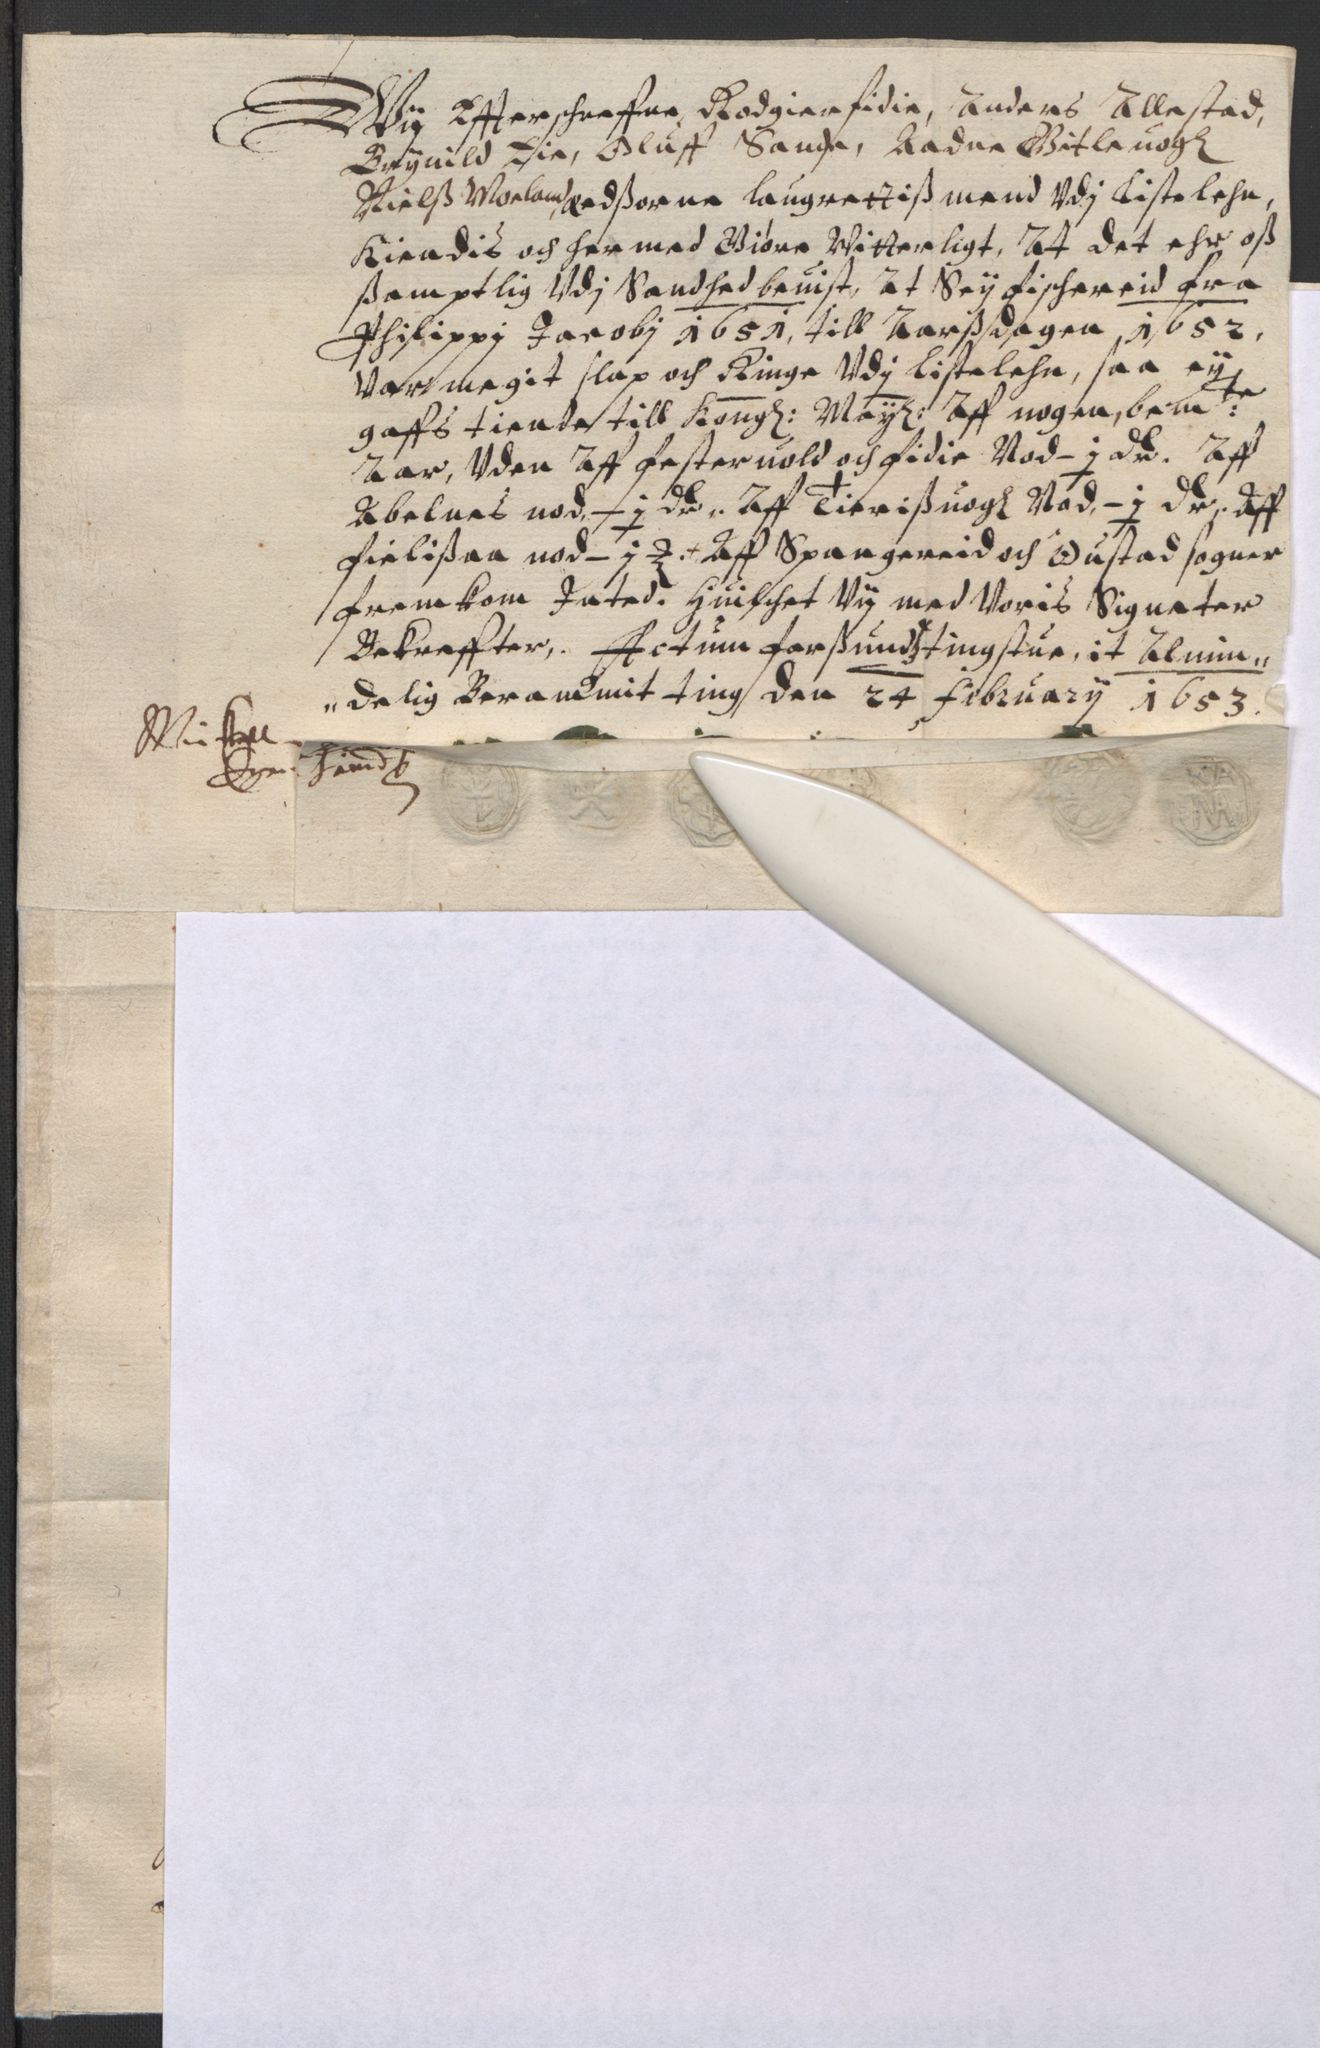 Wij Effterschreffne, Rodgier fidie, Anders Allestad,
Brynild Die, Oluff Sande, Aadne Vitleuogh
Nielß Moeland, Eedßorne laugrettißmend Vdj Listelehn,
Kiendis och hermed Giöre Vitterligt, At det ehr oß
ßamptlig Vdj Sandhed beuist, at Seyfischereid fra
Philippj Jacobj 1651, till Aarßdagen 1652,
Var megit slap och Ringe Vdj Listelehn, saa ey
gaffs tiende till Kongh: Mayh: Aff nogen, bemte:
Aar, Vden Aff festeruold och fidie Nod - j dlr. Aff
Abelnes nod, - j dlr. Aff Tierißuogh Nod, - j dlr. Aff
fielißaa nod - j Aff Spangereid och Oustad sogner
fremkom Inted. Huilchet Vij med Voris Signeter
Bekreffter,. Actum farßunds tingstue, it Almin„
„delig Berammit ting den 24 february 1653.
Mickell
hånd